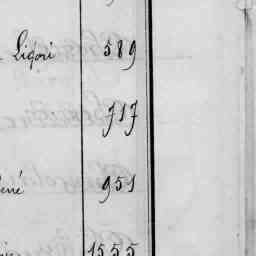 Ligori 589
717
951
1555